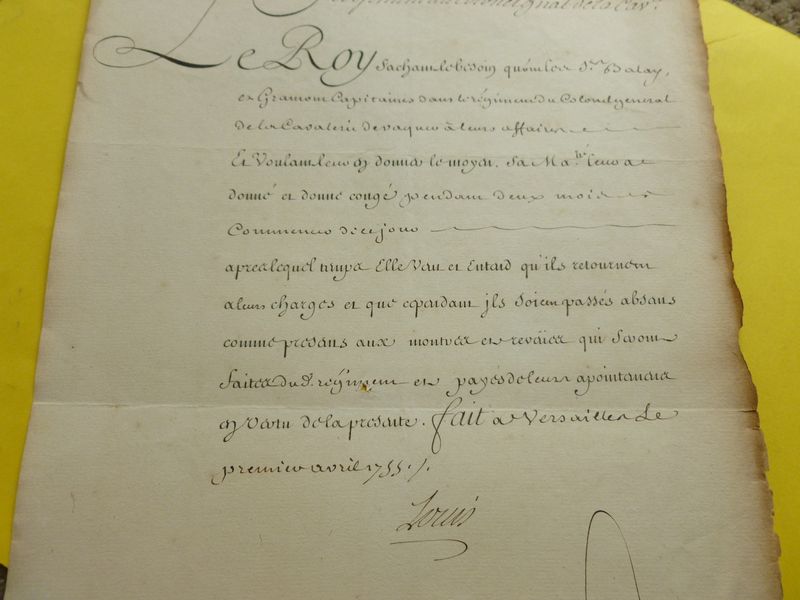 Regiment du Colonel gnal de la Cav.ie
Le Roy sachant le besoin qu'ont les Srs Balay,
et Gramont Capitaines dans le régiment du Colonel general
de la Cavalerie de vaquer à leurs affaires
Et Voulant leur en donner le moyen. Sa Ma.té leur a
donné et donne congé pendant deux mois
Commencer de ce jour
apres lequel temps Elle Veut et Entend qu'ils retournent
a leurs charges et que cependant ils soient passés absans
comme presens aux montres et reveües qui seront
faites dud. regiment et payés de leurs apointemens
en vertu de la presente. fait a Versailles Le
premier avril 1755./.
Louis